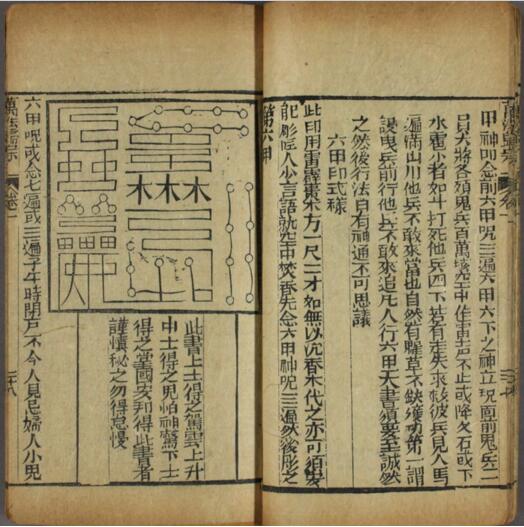 甲神咒念前六甲咒三遍六甲六下之神立現面前鬼兵二
員大將各領鬼兵百萬騰空中作雷声不止或降石或下
水雹者如斗打死他兵四下若有走失求救彼兵見人馬
遍滿山川他兵不敢來當也自然有糧草不缺獲功第一謂
曳兵前行他兵不敢來追凡人行六甲天書須要至誠然
之然後行法自有神通不可思議
六甲印式樣
此印用雷霹棗木方一尺二寸如無以沉香木代之亦可須要
能彫匠人少言語就空中焚香先念六甲神咒三遍然後彫之
第六甲
木木木
此書上士得之駕雲上升
中士得之鬼怕神驚下士
得之掌國安邦得此書者
謹慎秘之勿得怠慢
六甲咒或念七遍或三遍子午時閉戶不令人見尼婦人小兒
萬法歸宗 卷二 二十八